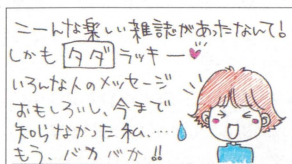 こーんな楽しい雑誌があったなんて!
しかもタダラッキー♥
いろんな人のメッセージ
おもしろいし、今まで
知らなかった私……
もう、バカバカ!!